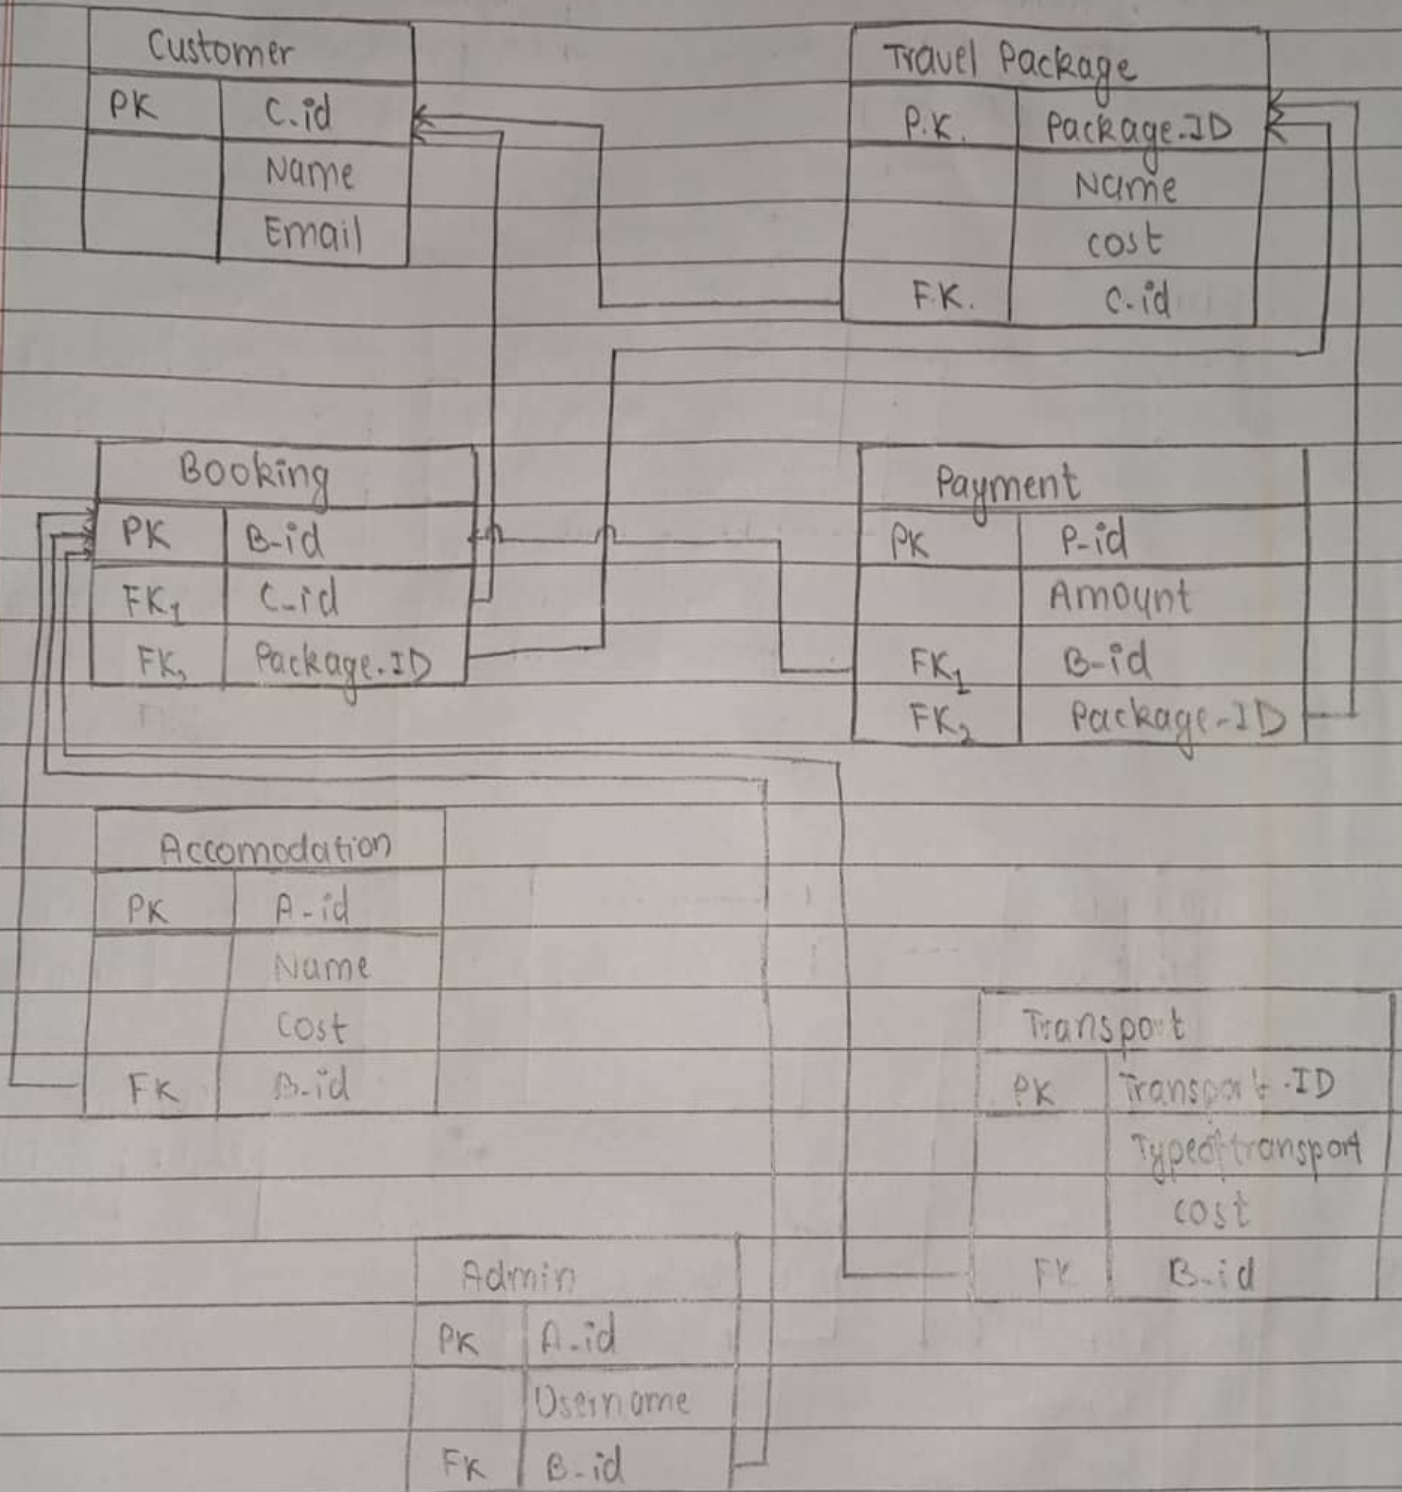 Customer
PK C.id
Name
Email
Travel Package
P.K. Package.ID
Name
cost
F.K. C.id
Booking
PK B-id
FK1 C-id
FK2 Package.ID
Payment
PK P-id
Amount
FK1 B-id
FK2 Package-ID
Accomodation
PK A-id
Name
Cost
FK B-id
Transport
PK Transport.ID
Typeoftransport
cost
FK B-id
Admin
PK A-id
Username
FK B-id